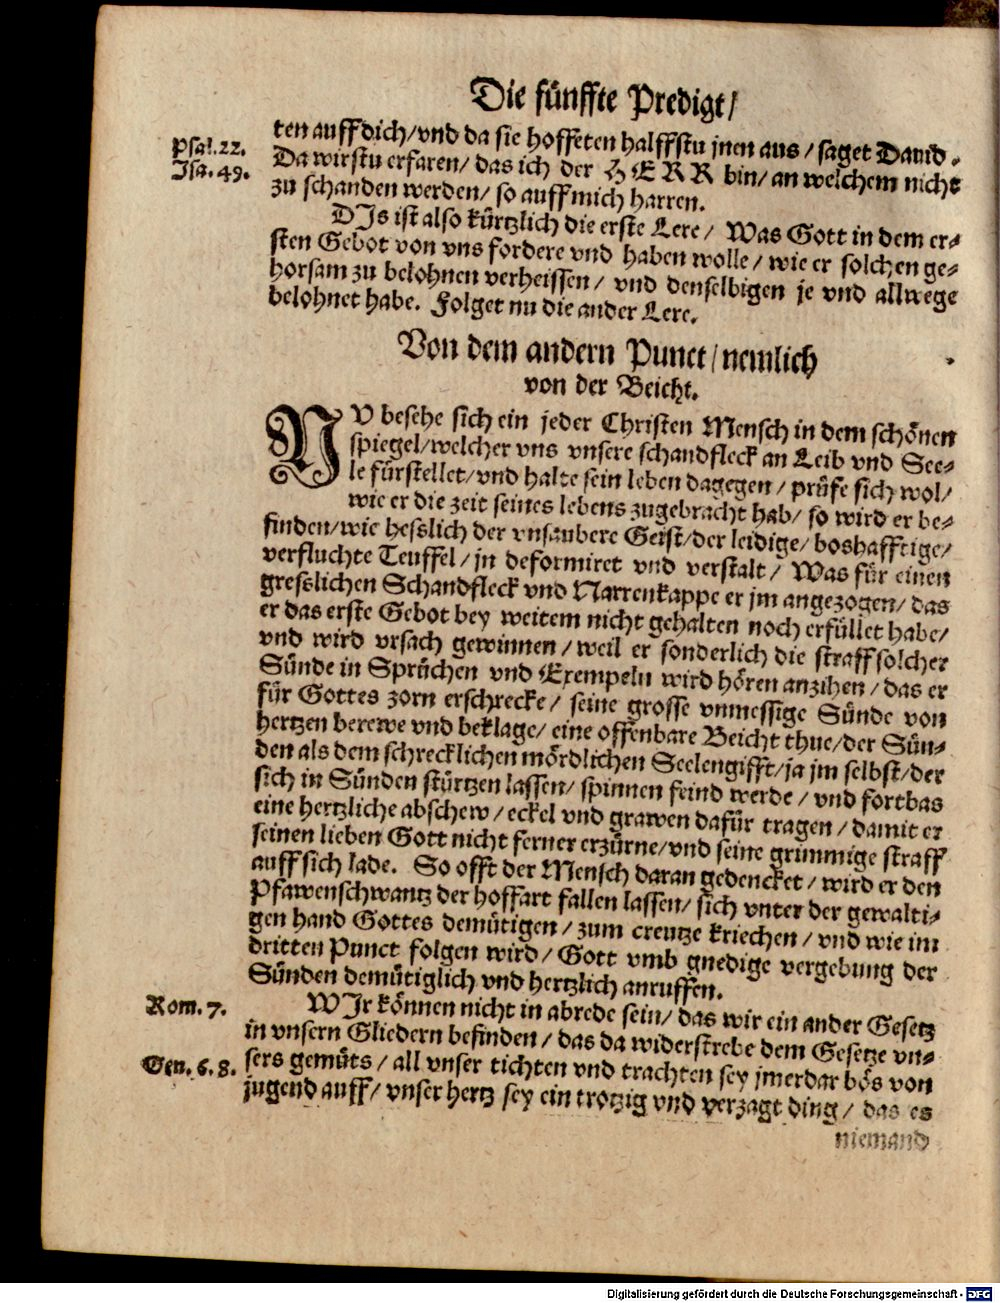 Die fünffte Predigt/
ten auff dich/vnd da sie hoffeten halffstu jnen aus/ saget Dauid.
Psal. 22.
Da wirstu erfaren/ das ich der HERR bin/ an welchem nicht
Isa. 49.
zu schanden werden/ so auff mich harren.
DJs ist also kürtzlich die erste Lere/ Was Gott in dem er-
sten Gebot von vns fordere vnd haben wolle/ wie er solchen ge-
horsam zu belohnen verheissen/ vnd denselbigen je vnd allwege
belohnet habe. Folget nu die ander Lere.
Von dem andern Punct/ nemlich
von der Beicht.
NV besehe sich ein jeder Christen Mensch in dem schönen
spiegel/welcher vns vnsere schandfleck an Leib vnd See-
le fürstellet/vnd halte sein leben dagegen/ prüfe sich wol/
wie er die zeit seines lebens zugebracht hab/ so wird er be-
finden/wie hesslich der vnsaubere Geist/der leidige/ boshafftige/
verfluchte Teuffel/ jn deformiret vnd verstalt/ Was für einen
gresslichen Schandfleck vnd Narrenkappe er jm angezogen/ das
er das erste Gebot bey weitem nicht gehalten noch erfüllet habe/
vnd wird vrsach gewinnen/ weil er sonderlich die straff solcher
Sünde in Sprüchen vnd Exempeln wird hören anzihen/ das er
für Gottes zorn erschrecke/ seine grosse vnmessige Sünde von
hertzen berewe vnd beklage/ eine offenbare Beicht thue/der Sün-
den als dem schrecklichen mördlichen Seelengifft/ja jm selbst/der
sich in Sünden stürtzen lassen/ spinnen feind werde/ vnd fortbas
eine hertzliche abschew/ eckel vnd grawen dafür tragen/ damit er
seinen lieben Gott nicht ferner erzürne/vnd seine grimmige straff
auff sich lade. So offt der Mensch daran gedencket/ wird er den
Pfawenschwantz der hoffart fallen lassen/ sich vnter der gewalti-
gen hand Gottes demütigen/ zum creutze kriechen/ vnd wie im
dritten Punct folgen wird/ Gott vmb gnedige vergebung der
Sünden demütiglich vnd hertzlich anruffen.
WJr können nicht in abrede sein/ das wir ein ander Gesetz
Rom. 7.
in vnsern Gliedern befinden/ das da widerstrebe dem Gesetze vn-
sers gemüts/ all vnser tichten vnd trachten sey jmerdar bös von
Gen. 6. 8.
jugend auff/ vnser hertz sey ein trotzig vnd verzagt ding/ das es
niemand
Digitalisierung gefördert durch die Deutsche Forschungsgemeinschaft - DFG